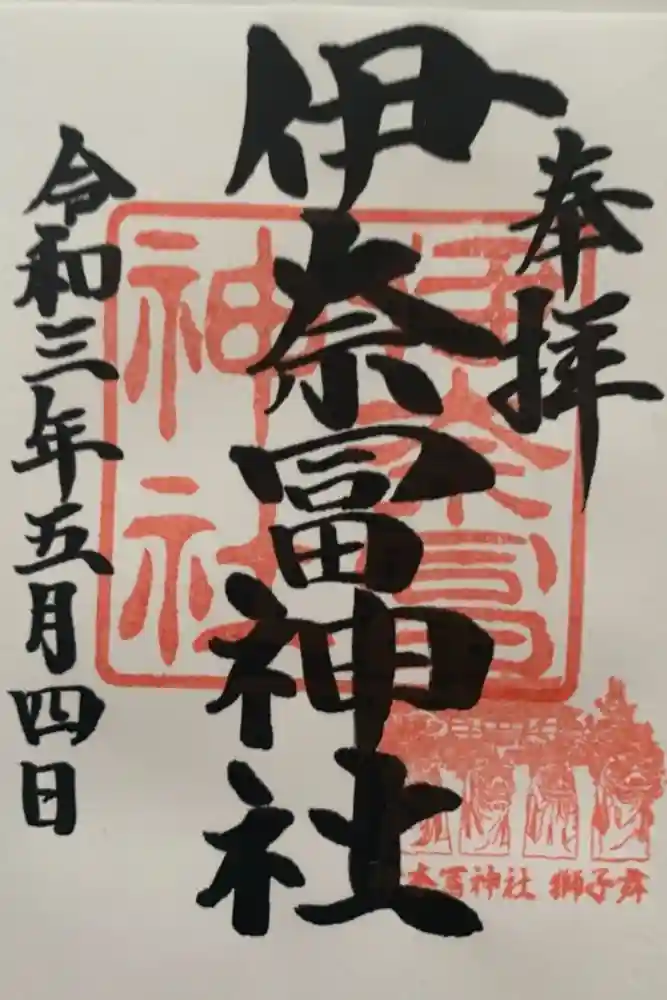 奉拝
伊奈冨神社
令和三年五月四日
伊奈冨
神社
奈冨神社 獅子舞